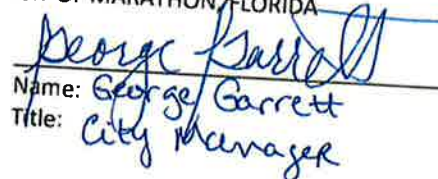 OF MARATHON, FLORIDA
George Garrett
Name: George Garrett
Title: City Manager